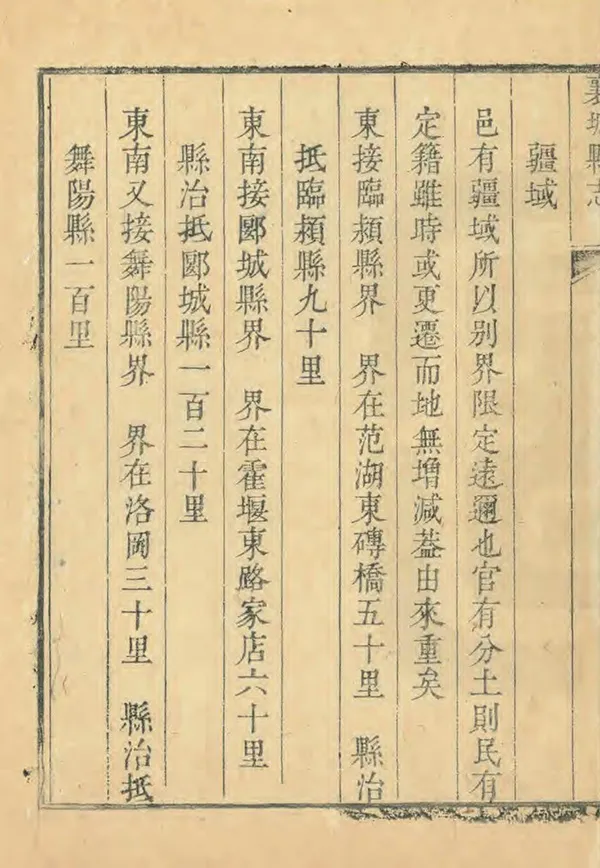 襄城縣志
疆域
邑有疆域所以别界限定遠邇也官有分土則民有
定籍雖時或更遷而地無增減葢由來重矣
東接臨潁縣界　界在范湖東磚橋五十里　縣治
抵臨潁縣九十里
東南接郾城縣界　界在霍堰東路家店六十里
縣治抵郾城縣一百二十里
東南又接舞陽縣界　界在洛岡三十里　縣治抵
舞陽縣一百里